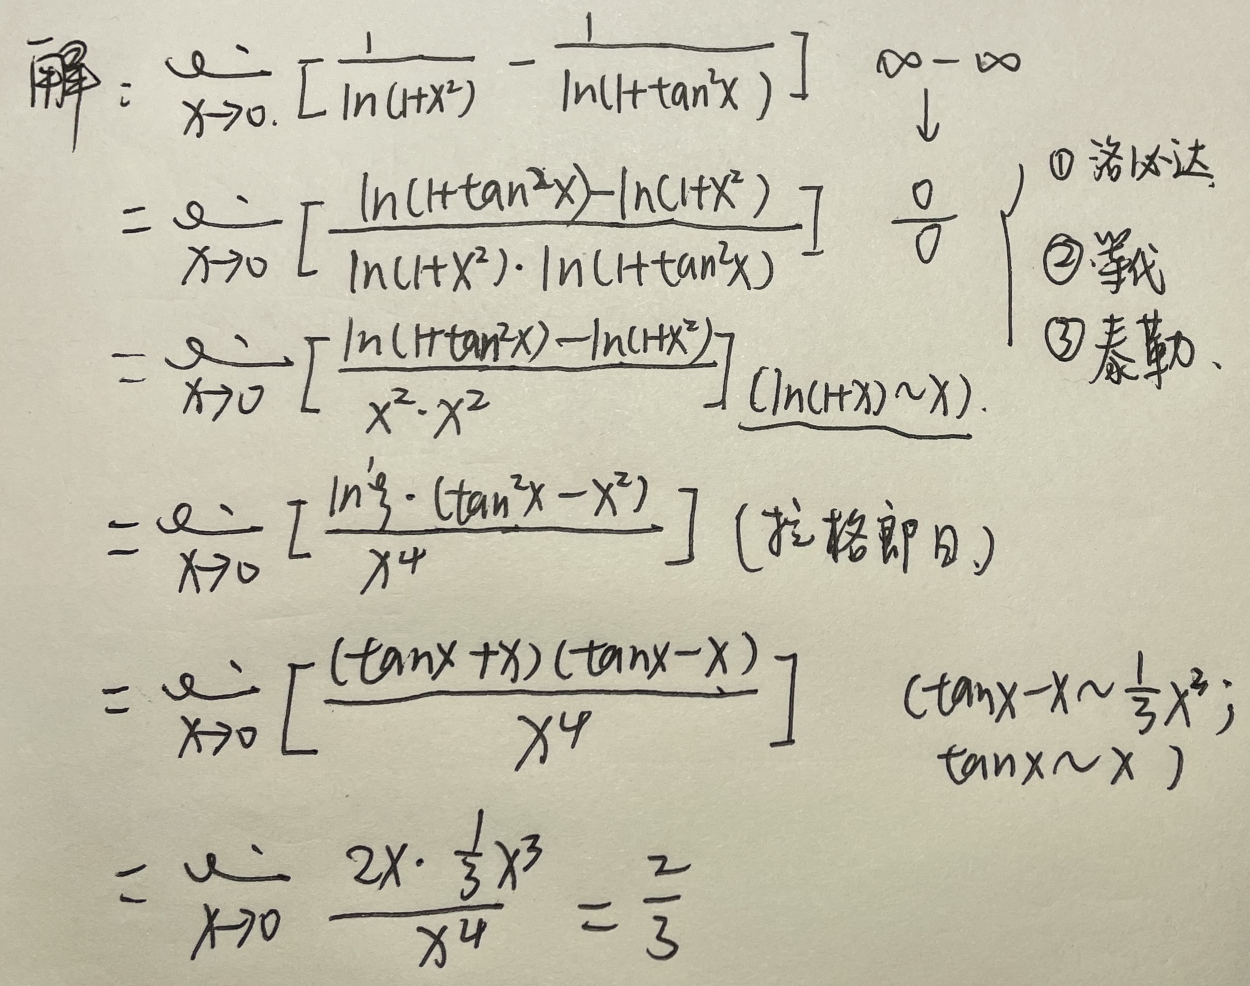 解: lim x→0. [ 1/ln(1+x²) - 1/ln(1+tan²x) ] ∞-∞
↓
= lim x→0 [ ln(1+tan²x)-ln(1+x²) / ln(1+x²)·ln(1+tan²x) ] 0/0 ① 洛必达
② 等代
③ 泰勒、
= lim x→0 [ ln(1+tan²x)-ln(1+x²) / x²·x² ] (ln(1+x)~x).
= lim x→0 [ ln'ξ·(tan²x-x²) / x⁴ ] (拉格郎日)
= lim x→0 [ (tanx+x)(tanx-x) / x⁴ ] (tanx-x~1/3 x³;
tanx~x)
= lim x→0 2x·1/3 x³ / x⁴ = 2/3